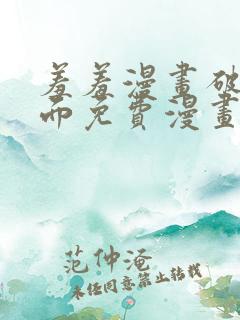 羞羞漫畫破
而免費漫畫
范仲淹
未经同意禁止转载